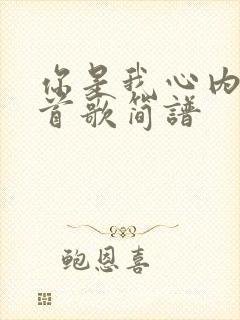 你是我心内
首歌简谱
鲍恩喜